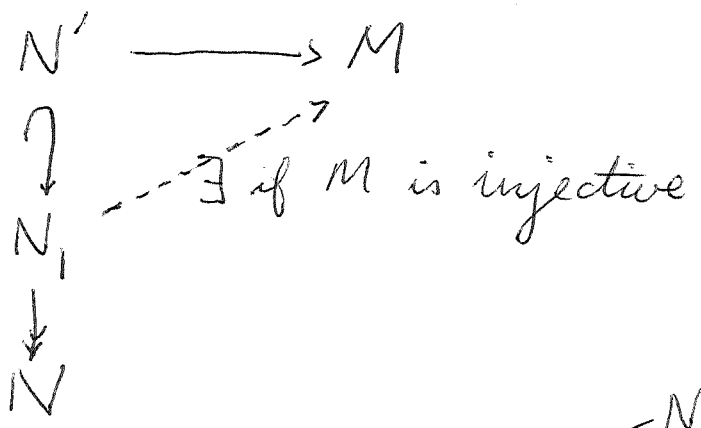 N′ → M
∃ if M is injective
N₁
N
N